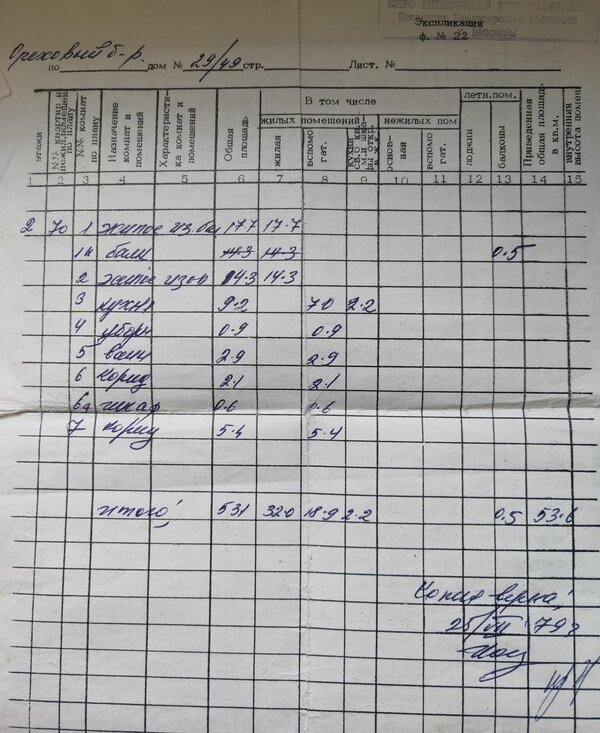 БЮРО ТЕХНИЧЕСКОЙ
Экспликация
ф. № 22
Ореховый б-р.
по дом № 29/49 стр. Лист. №
этажи
№№ квартир и нежил.помещен. по плану
№№ комнат по плану
Назначение комнат и помещений
Характеристика комнат и помещений
Общая площадь
В том числе
жилых помещений
нежилых пом
жилая
вспомогат.
основная
вспомогат.
летн.пом.
лоджии
балконы
Приведенная общая площадь в кв.м.
внутренняя высота помещ
1 2 3 4 5 6 7 8 9 10 11 12 13 14 15
2 70 1 жилое из. бал 17.7 17.7
1а балк 14.3 14.3 0.5
2 жилое изол 14.3 14.3
3 кухня 9.2 7.0 2.2
4 уборн 0.9 0.9
5 ванн 2.9 2.9
6 корид 2.1 2.1
6а шкаф 0.6 0.6
7 корид 5.4 5.4
итого 53.1 32.0 18.9 2.2 0.5 53.6
Копия верна
25/VII 79г